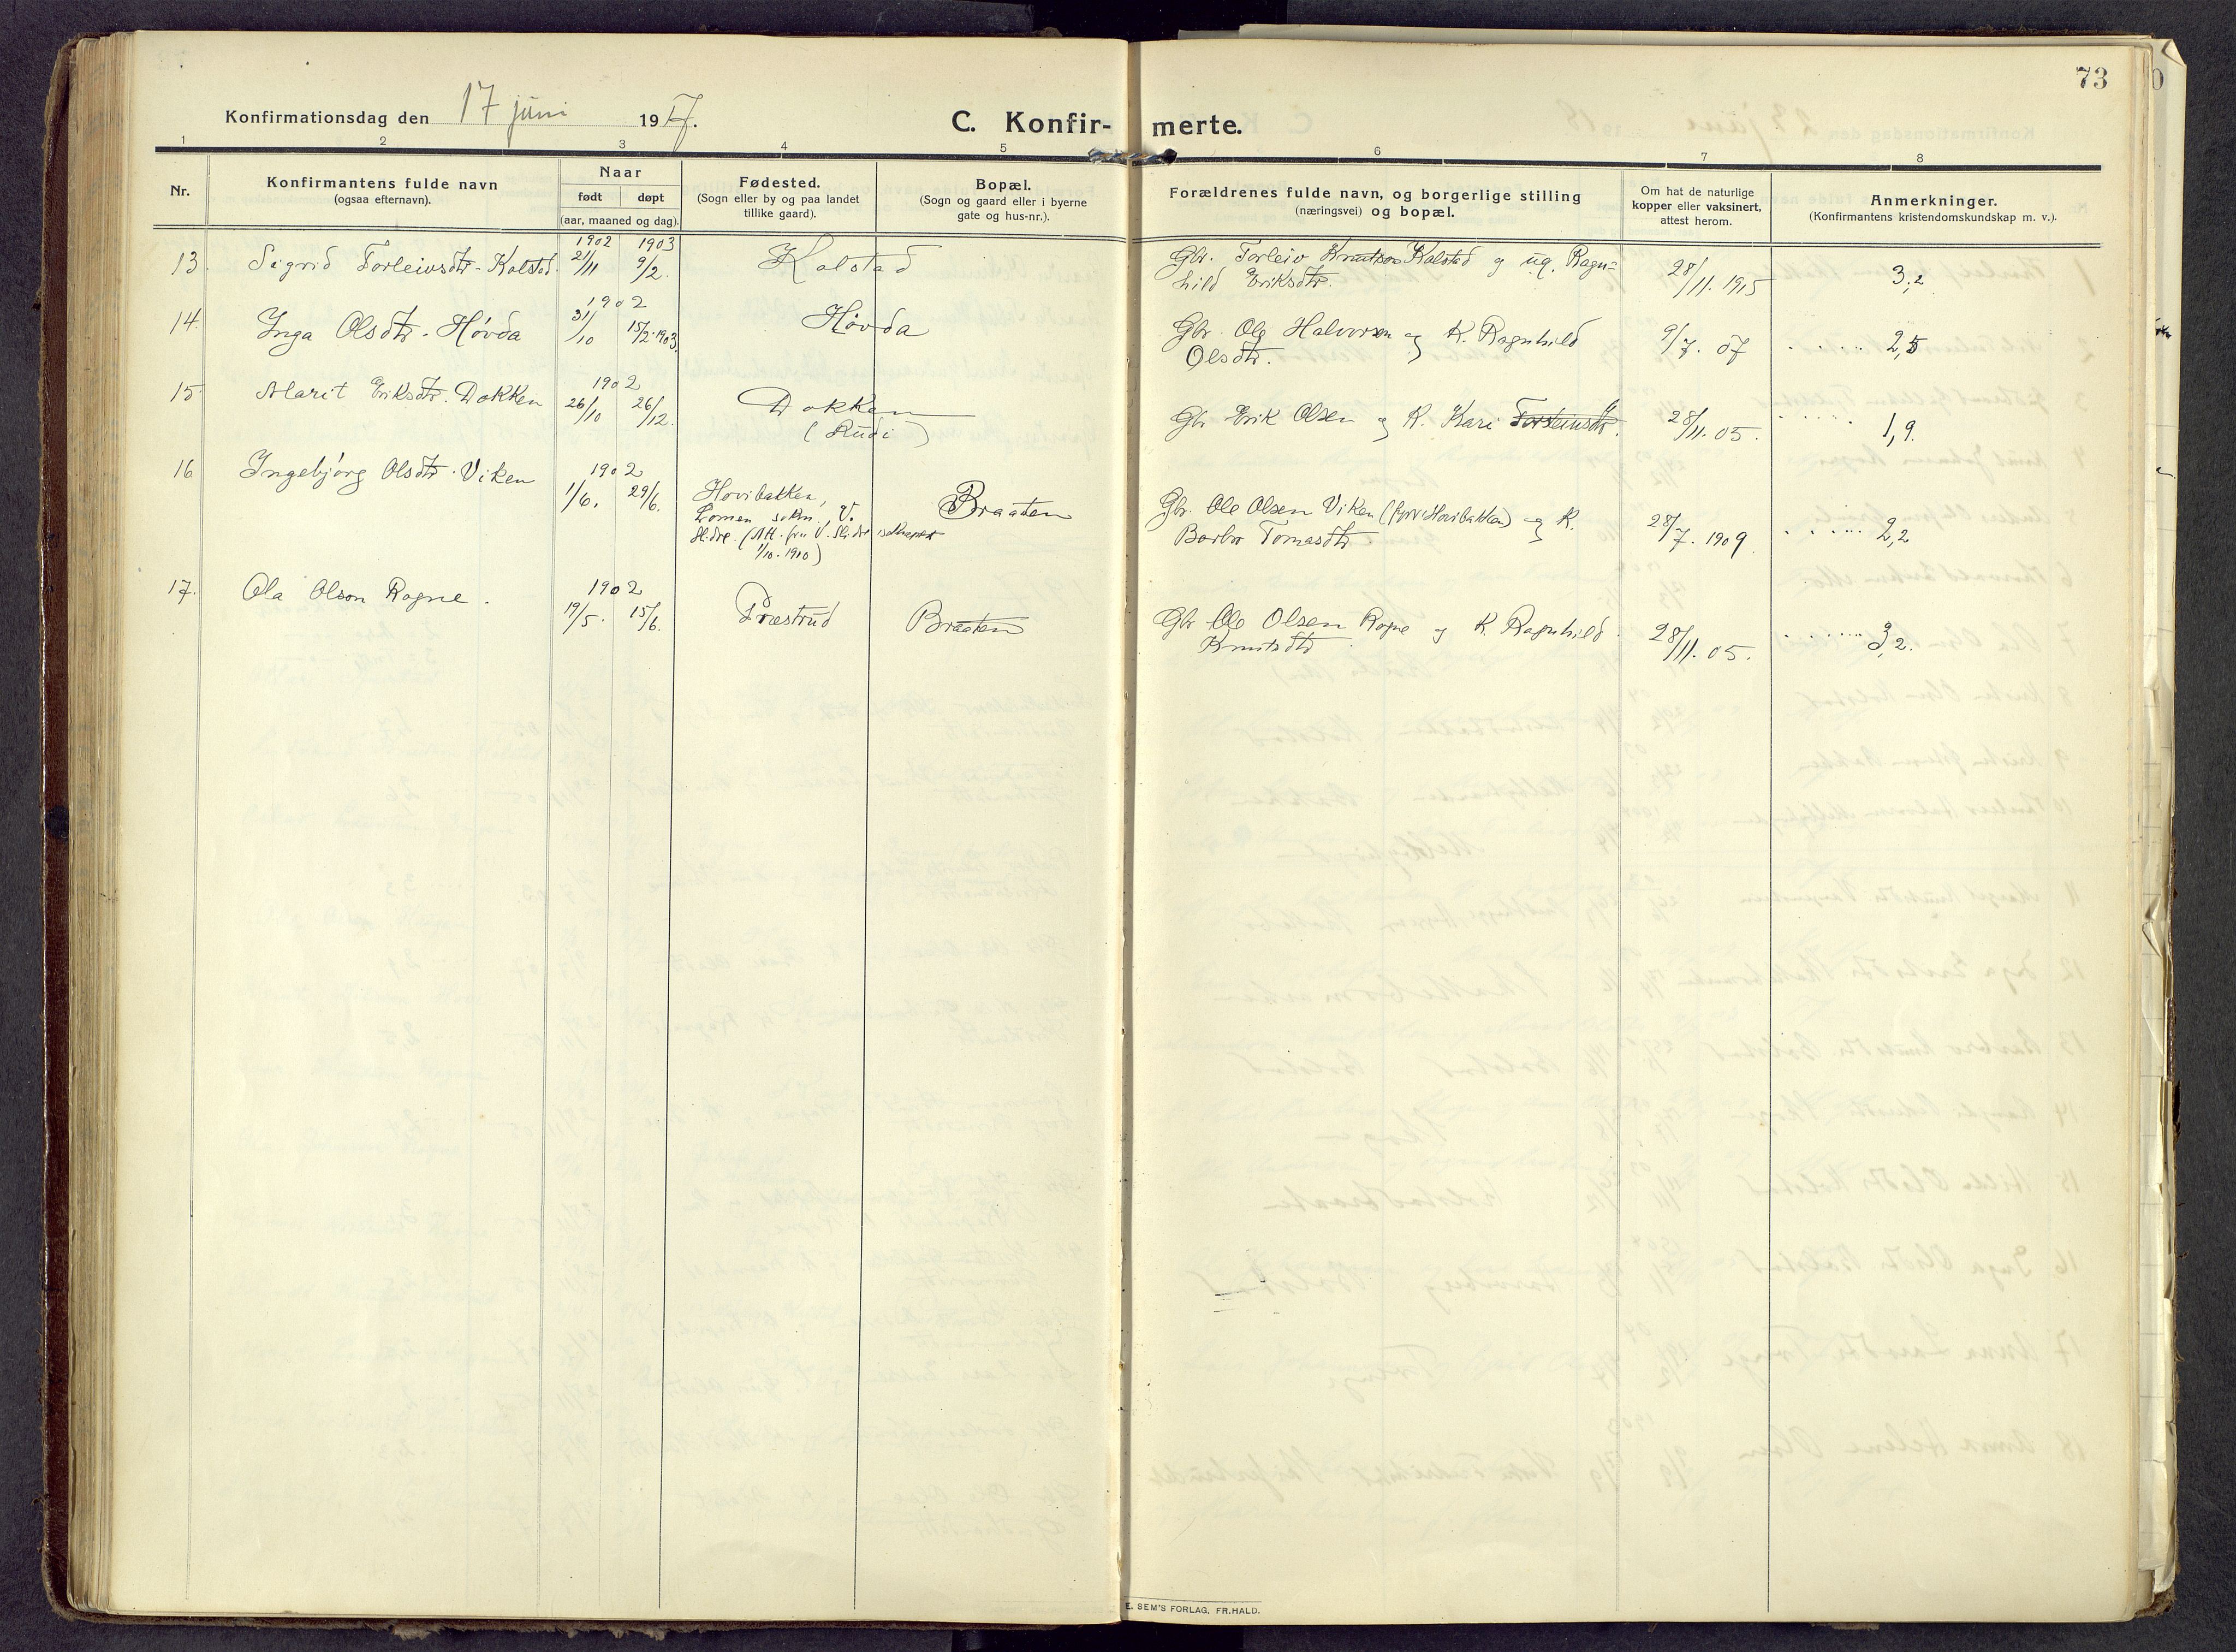 73
Konfirmationsdag den 17 juni 1917.
C. Konfir- merte.
1 2 3 4 5 6 7 8
Nr.
Konfirmantens fulde navn
(ogsaa efternavn).
Naar
født døpt
(aar, maaned og dag).
Fødested.
(Sogn eller by og paa landet
tillike gaard).
Bopæl.
(Sogn og gaard eller i byerne
gate og hus-nr.).
Forældrenes fulde navn, og borgerlige stilling
(næringsvei) og bopæl.
Om hat de naturlige
kopper eller vaksinert,
attest herom.
Anmerkninger.
(Konfirmantens kristendomskundskap m. v.).
1902 1903
13. Sigrid Torleivsdtr. Kolstad. 21/11 9/2. Kolstad Gbr. Torleiv Knutson Kolstad og ug. Ragn=
hild Eriksdtr. 28/11. 1915 3,2
1902
14. Inga Olsdtr. Høvda 31/10 15/2.1903. Høvda Gbr. Ole Halvorsen og K. Ragnhild
Olsdtr. 9/7. 07 2,5
1902
15. Marit Eriksdtr. Dokken 26/10 26/12. Dokken
(Rudi) Gbr Erik Olsen og K. Kari Torsteinsdtr. 28/11. 05. 1,9.
16 Ingebjørg Olsdtr. Viken 1902
1/6. 29/6. Hovibakken,
Lomen sokn, V.
Slidre. (Att. fra V. Slidre
1/10. 1910)
Braaten
Gbr. Ole Olsen Viken (Hovibakken) og K.
Barbro Tomasdtr 28/7. 1909 2,2
17. Ola Olson Rogne. 1902
19/5. 15/6. Præstrud Braaten Gbr Ole Olsen Rogne og K. Ragnhild
Knutsdtr 28/11. 05. 3,2.
E. SEM'S FORLAG, FR.HALD.